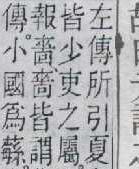 左傳所引夏
皆少吏之屬
報嗇嗇皆謂
傳小國爲蘇